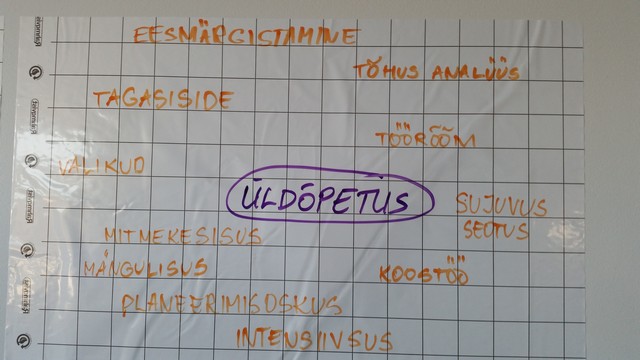 EESMÄRGISTAMINE
TÕHUS ANALÜÜS
TAGASISIDE
TÖÖRÕÕM
VALIKUD
ÜLDÕPETUS
SUJUVUS
SEOTUS
MITMEKESISUS
MÄNGULISUS
KOOSTÖÖ
PLANEERIMISOSKUS
INTENSIIVSUS